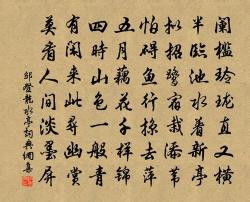 闌檻玲瓏直又橫
半臨池水著新亭
拟招鷺宿栽添苇
怕礙魚行掠去萍
五月藕花千樣錦
四時山色一般青
有閑來此尋幽賞
莫看人間淡墨屏
邵登龍水亭詞典網集